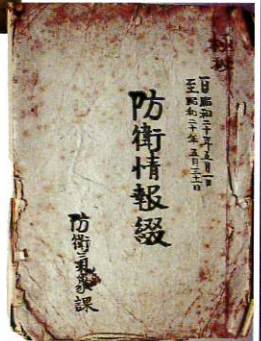 自昭和二十年五月一日
至昭和二十年五月三十一日
防衛情報綴
防衛氣象課